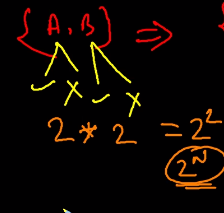 {A, B} ⇒ {
✓ X ✓ X
2 * 2 = 2²
2ᴺ